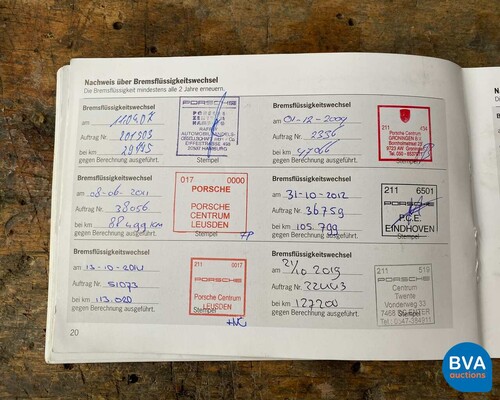 Nachweis über Bremsflüssigkeitswechsel
Die Bremsflüssigkeit mindestens alle 2 Jahre erneuern.
Bremsflüssigkeitswechsel
am 11.04.07
Auftrag Nr.
bei km
gegen Berechnung ausgeführt.
PORSCHE
PORSCHE
ZENTRUM
HAMBURG
EIFFESTRASSE 498
20537 HAMBURG
Stempel
Bremsflüssigkeitswechsel
am 01-12-2009
Auftrag Nr. 2356
bei km
gegen Berechnung ausgeführt.
211
Porsche Centrum
GRONINGEN B.V.
Stempel
Bremsflüssigkeitswechsel
am 08-06-2011
Auftrag Nr. 38056
bei km 88499 km
gegen Berechnung ausgeführt.
017 0000
PORSCHE
PORSCHE
CENTRUM
LEUSDEN
Stempel
Bremsflüssigkeitswechsel
am 31-10-2012
Auftrag Nr. 36759
bei km 105.799
gegen Berechnung ausgeführt.
211 6501
PORSCHE
EINDHOVEN
Stempel
Bremsflüssigkeitswechsel
am 13-10-2014
Auftrag Nr. 51073
bei km 113.020
gegen Berechnung ausgeführt.
211 0017
PORSCHE
Porsche Centrum
LEUSDEN
Stempel
Bremsflüssigkeitswechsel
am 21/10 2019
Auftrag Nr.
bei km 122200
gegen Berechnung ausgeführt.
211 519
PORSCHE
Centrum
Twente
Vonderweg 33
Stempel
20
BVA
auctions